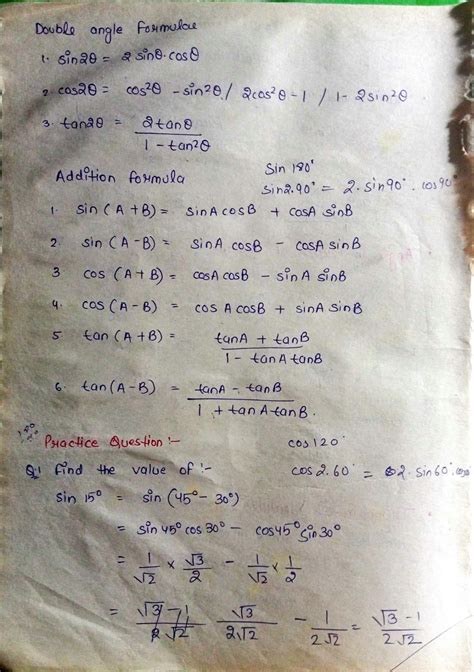 Double angle Formulae
1. sin2θ = 2 sinθ. cosθ
2. cos2θ = cos²θ - sin²θ / 2cos²θ - 1 / 1- 2sin²θ
3. tan2θ = 2tanθ / 1 - tan²θ
Sin 180°
Addition formula
sin2.90° = 2. sin90°. cos90°
1. sin (A + B) = sinA cosB + cosA sinB
2. sin (A - B) = sinA cosB - cosA sinB
3 cos (A + B) = cosA cosB - sinA sinB
4. cos (A - B) = cos A cosB + sinA sinB
5 tan (A + B) = tanA + tanB / 1 - tanA tanB
6. tan (A - B) = tanA - tanB / 1 + tanA tanB.
Practice Question :-
cos120°
Q1 Find the value of :-
cos 2.60° = 2. sin60°. cos
sin 15° = sin (45° - 30°)
= sin 45° cos 30° - cos45° sin 30°
= 1/√2 × √3/2 - 1/√2 × 1/2
= √3 - 1 / 2√2 √3/2√2 - 1/2√2 = √3 - 1 / 2√2